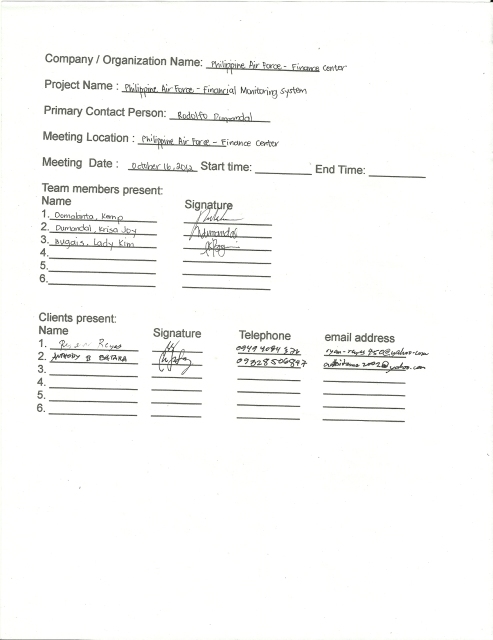 Company / Organization Name: Philippine Air Force - Finance Center
Project Name : Philippine Air Force - Financial Monitoring System
Primary Contact Person: Rodolfo
Meeting Location : Philippine Air Force - Finance Center
Meeting Date : October 16, 2012 Start time: End Time:
Team members present:
Name Signature
1. Domalanta, Kemp
2. Dumandal, Krisa Joy
3. Bugais, Lady Kim
4.
5.
6.
Clients present:
Name Signature Telephone email address
1. Ryan Reyes
2. Anthony B
3.
4.
5.
6.